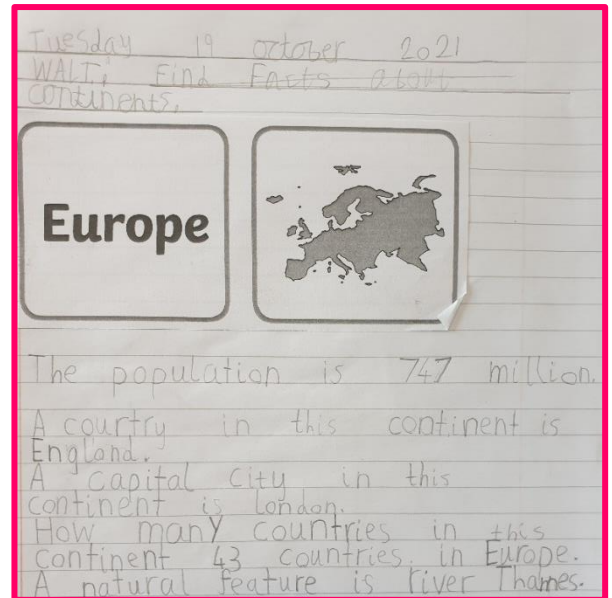 Tuesday 19 october 2021
WALT: Find Facts about
continents.
Europe
The population is 747 million.
A courtry in this continent is
England.
A capital city in this
continent is London.
How many countries in this
continent 43 countries in Europe.
A natural feature is river Thames.